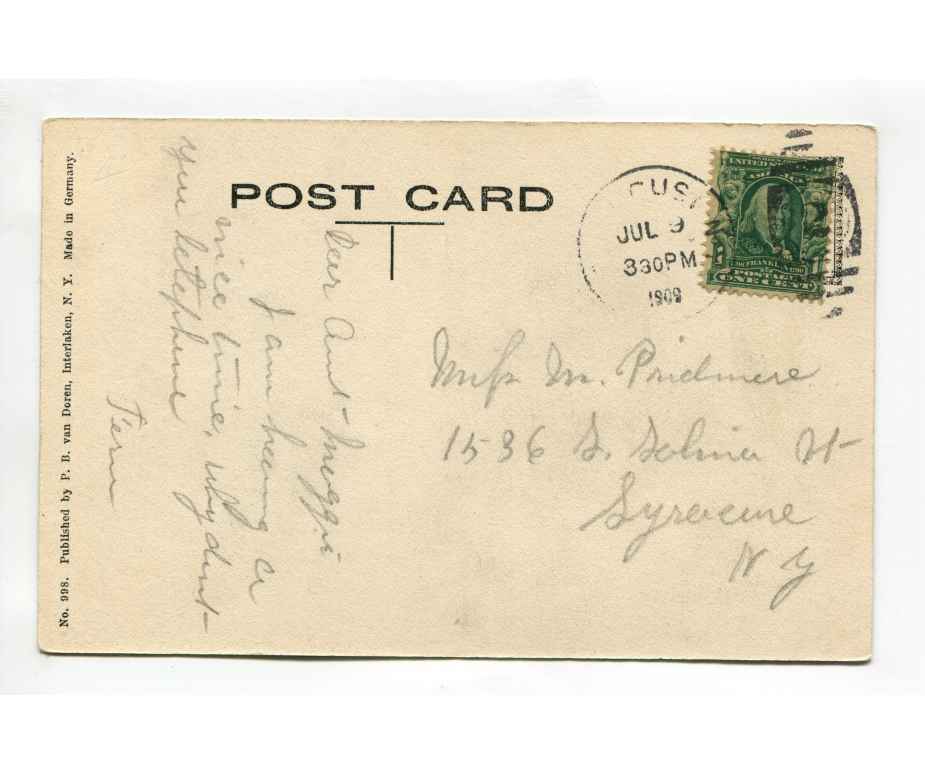 POST CARD
JUL 9
330PM
1909
UNITED STATES OF
AMERICA
FRANKLIN
POSTAGE
ONE CENT
Dear Aunt Maggie
I am having a
nice time, why dont
you telephone
Fern
Miss M. Pridmore
1536 S. Salina St
Syracuse
N Y
No. 998. Published by P. B. van Doren, Interlaken, N. Y. Made in Germany.